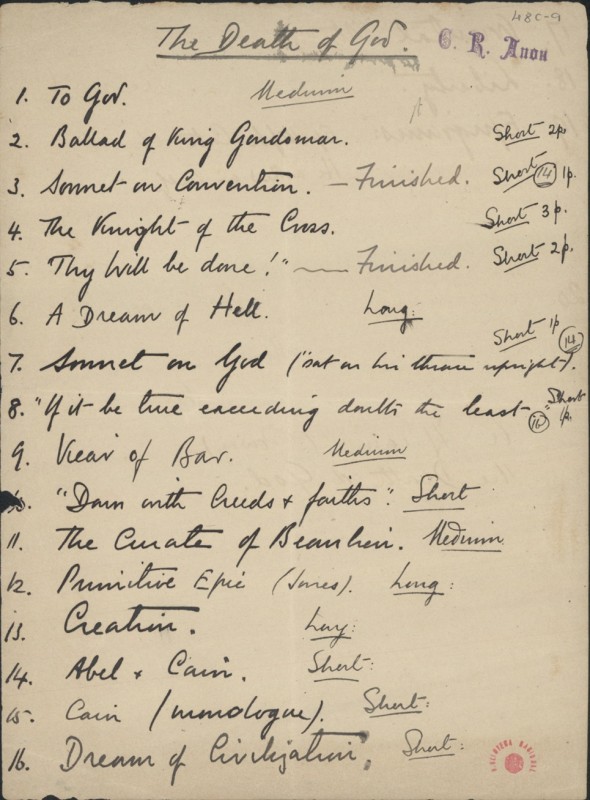 48C-9
The Death of God.
C. R. Anon
1. To God. Medium
2. Ballad of King Gondsmar. Short 2p.
3. Sonnet on Convention. — Finished. Short (14) 1p.
4. The Knight of the Cross. Short 3p.
5. "Thy Will be done!" — Finished. Short 2p.
6. A Dream of Hell. Long:
7. Sonnet on God ("sat on his throne upright"). Short 1p (14)
8. "If it be true exceeding doubts the least" Short 1p.
9. Vicar of Bar. Medium
10. "Down with Creeds & faiths". Short
11. The Curate of Beaulieu. Medium
12. Primitive Epic (Jones). Long:
13. Creation. Long:
14. Abel & Cain. Short:
15. Cain (monologue). Short:
16. Dream of Civilization. Short: